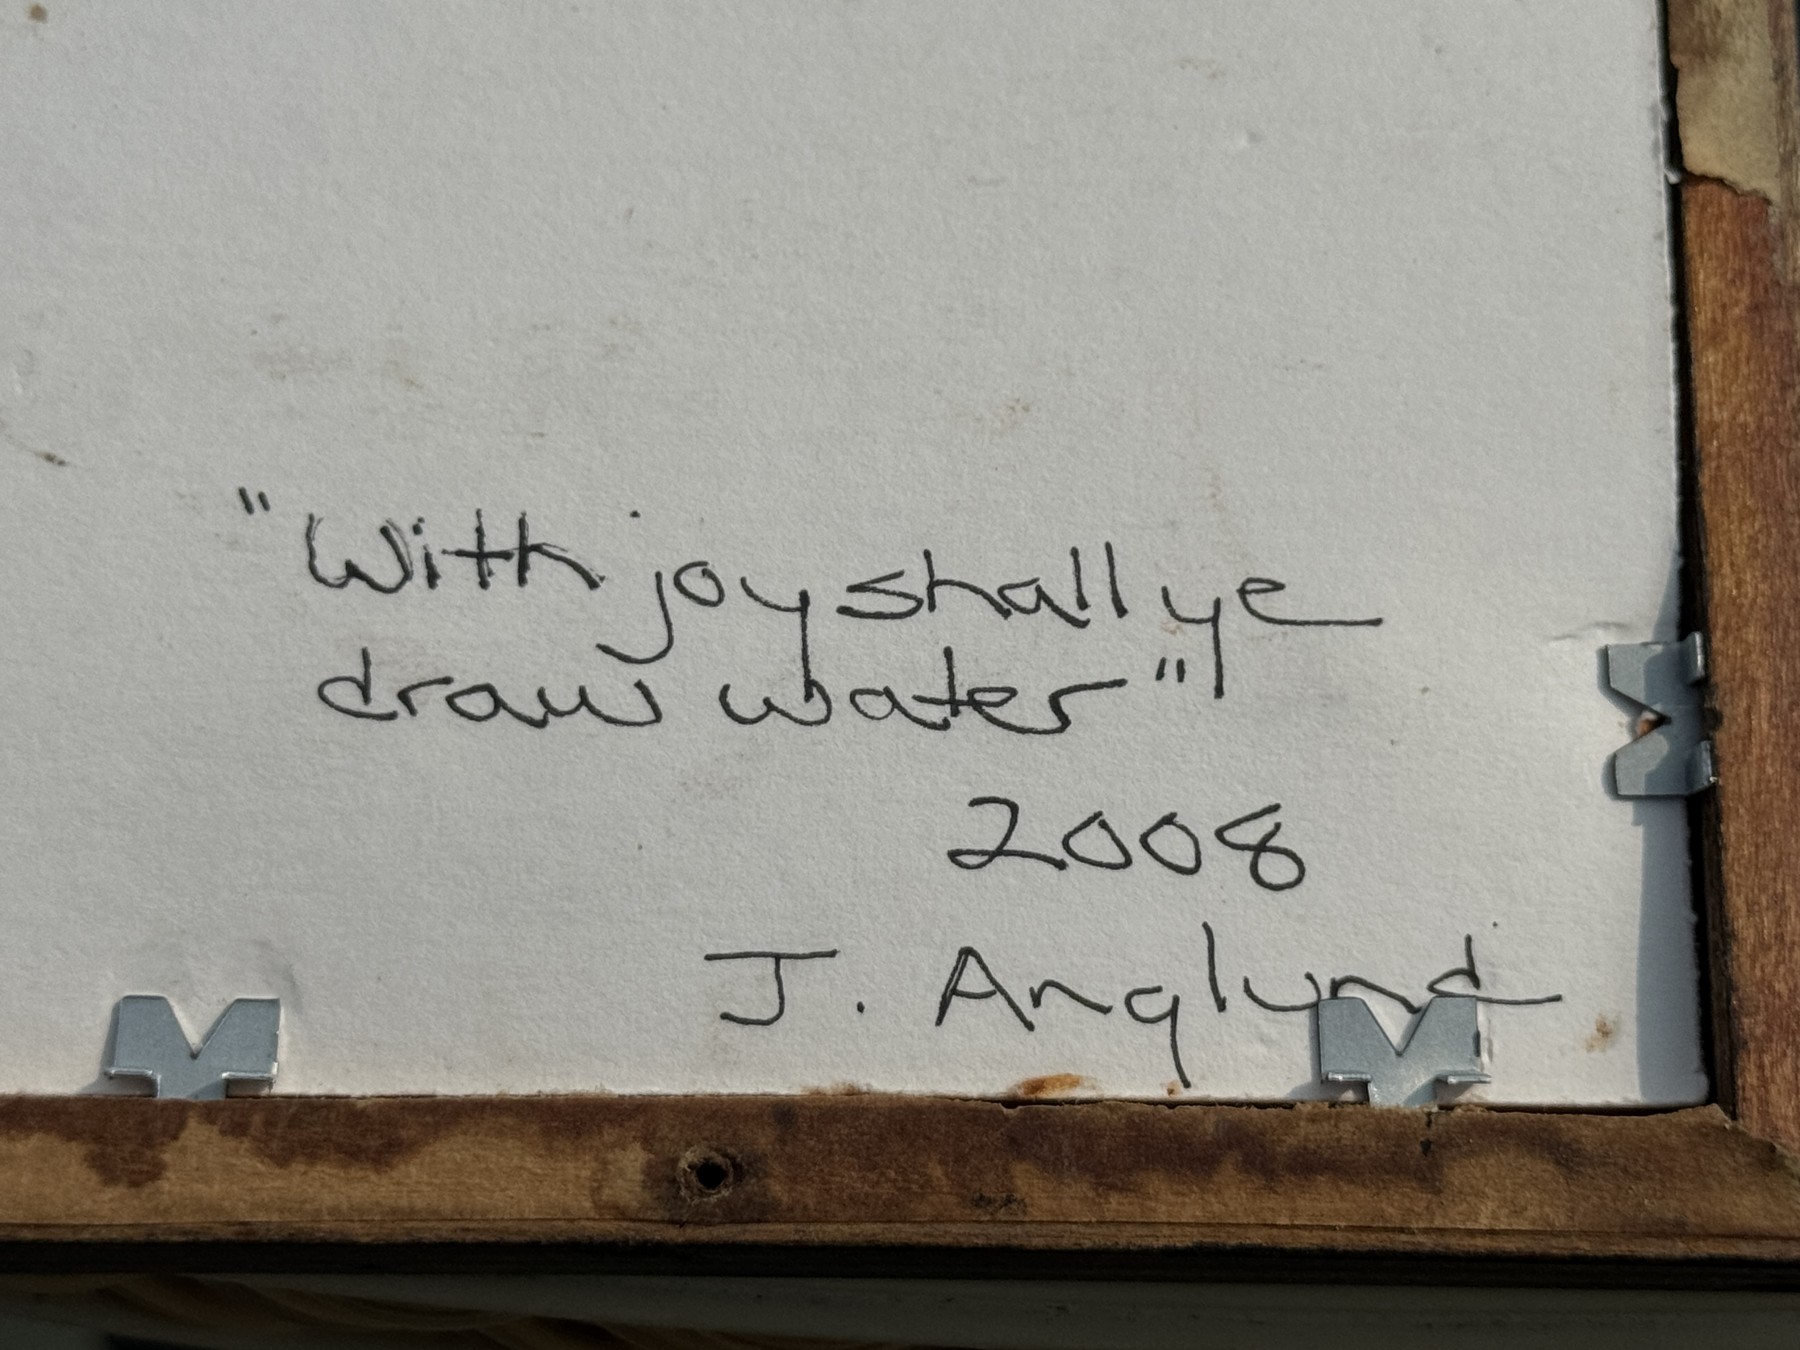 "With joy shall ye
draw water"
2008
J. Anglund